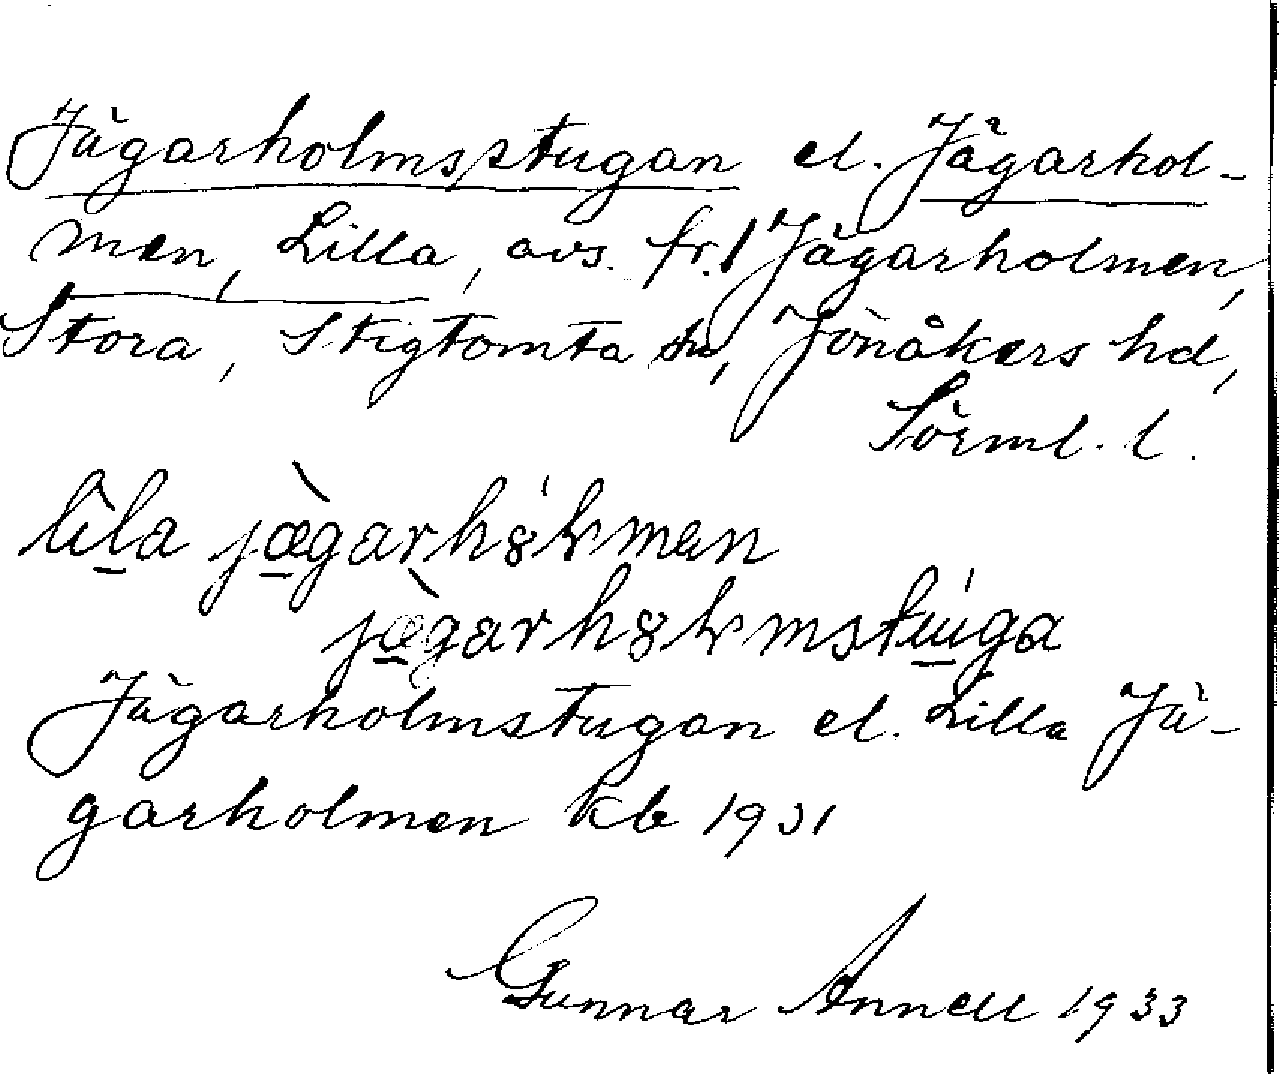 Jägarholmsstugan el. Jägarhol-
men, Lilla, avs. fr. Jägarholmen,
Stora, Stigtomta sn, Jönåkers hd,
Sörml. l.
Jägarholmstugan el. Lilla Jä-
garholmen kb 1931
Gunnar Annell 1933